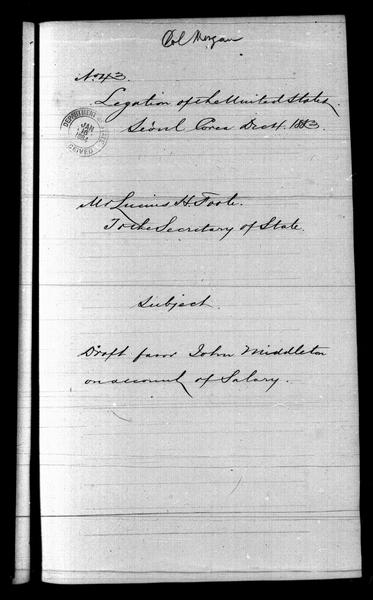 Col Morgan
No. 43.
Legation of the United States,
Séoul Corea Dec 4. 1883.
DEPARTMENT OF STATE
JAN
1884
RECEIVED
Mr Lucius H. Foote.
To the Secretary of State.
Subject.
Draft favor John Middleton
on account of Salary.